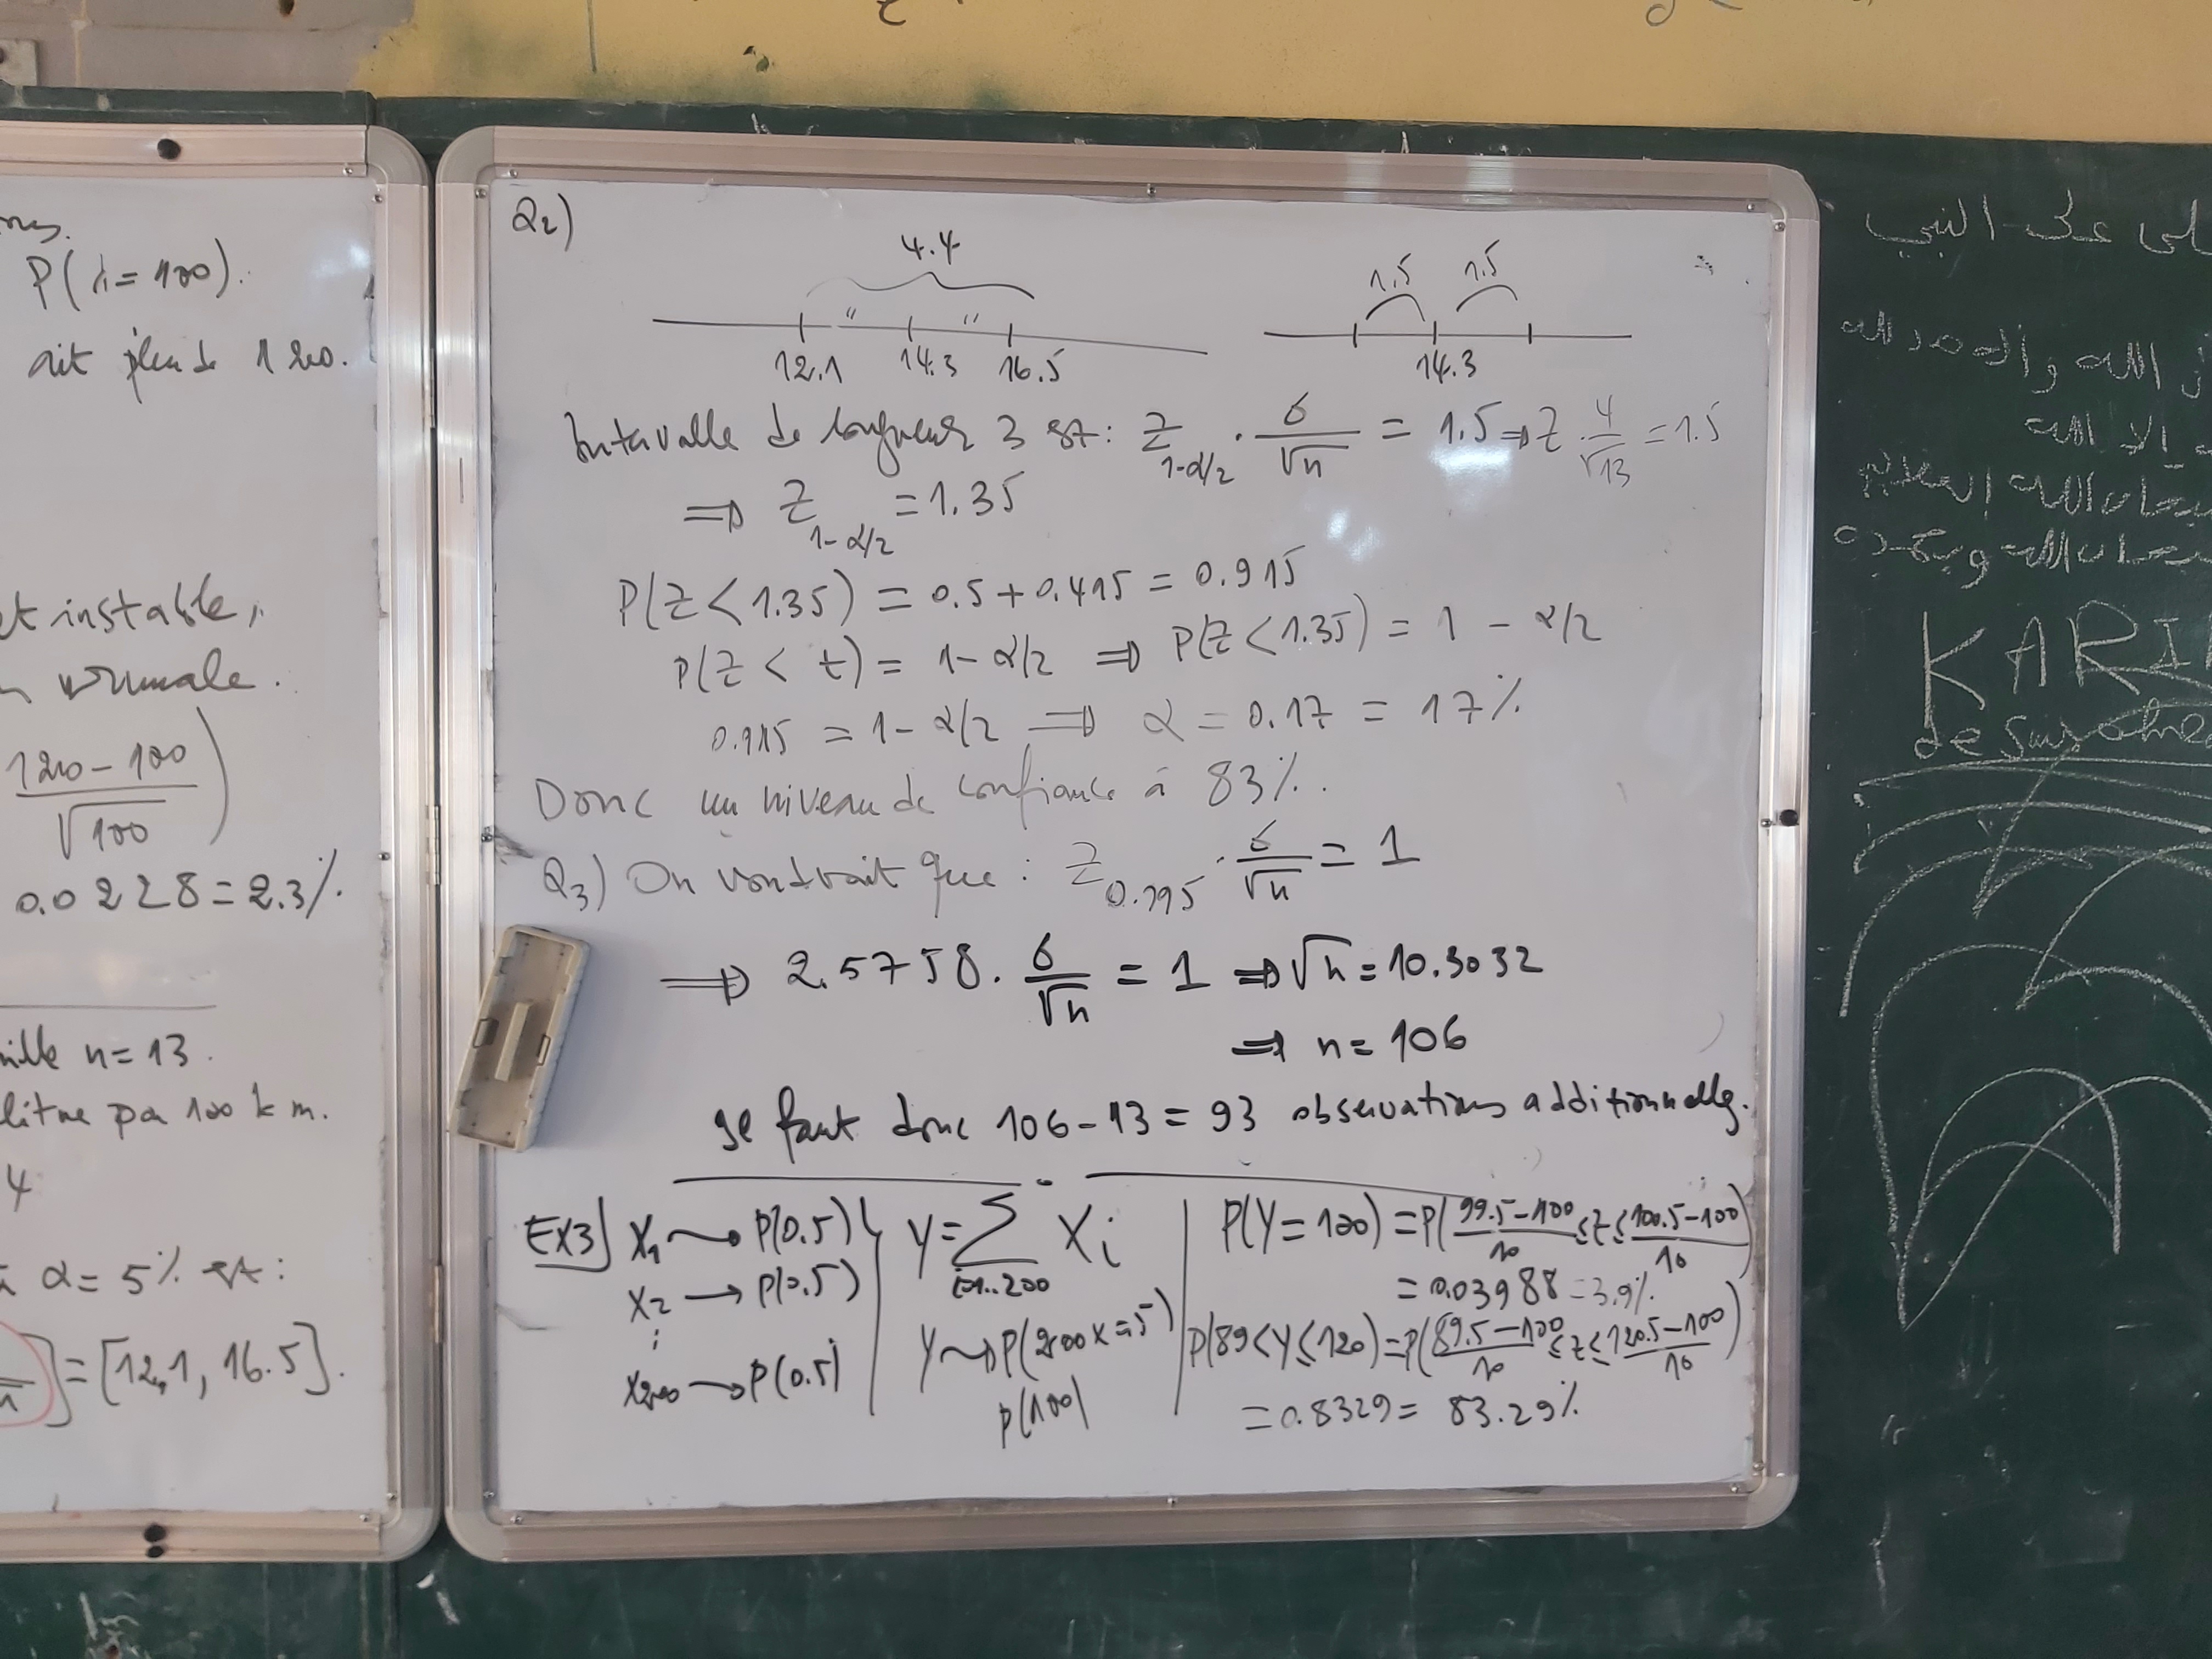 P(λ=100).
ait plus de 120.
et instable,
normale.
120-100
√100
0.0228=2.3%
n=13.
litre par 100 km.
4
α=5% est:
]=[12,1, 16.5].
Q2)
4.4
" "
12.1 14.3 16.5
1.5 1.5
14.3
Intervalle de longueur 3 est: Z1-α/2 . σ/√n = 1.5 ⇒ Z . 4/√13 = 1.5
⇒ Z1-α/2 = 1.35
P(Z < 1.35) = 0.5+0.415 = 0.915
P(Z < t) = 1-α/2 ⇒ P(Z<1.35) = 1 - α/2
0.915 = 1-α/2 ⇒ α = 0.17 = 17%
Donc un niveau de confiance à 83%.
Q3) On voudrait que: Z0.995 . σ/√n = 1
⇒ 2.5758. σ/√n = 1 ⇒ √n = 10.3032
⇒ n = 106
Il faut donc 106-13=93 observations additionnelles.
EX3] X1 → P(0.5)
X2 → P(0.5)
⋮
X200 → P(0.5)
Y=∑ Xi
i=1..200
Y → P(200x=5)
P(100)
P(Y=100) = P(99.5-100/10 ≤ Z ≤ 100.5-100/10)
= 0.03988 = 3.9%
P(89<Y≤120)=P(89.5-100/10 ≤ Z ≤ 120.5-100/10)
= 0.8329 = 83.29%
على النبي
الله والحمد لله
إلا الله
الله العظيم
الله وبحمده
KARI